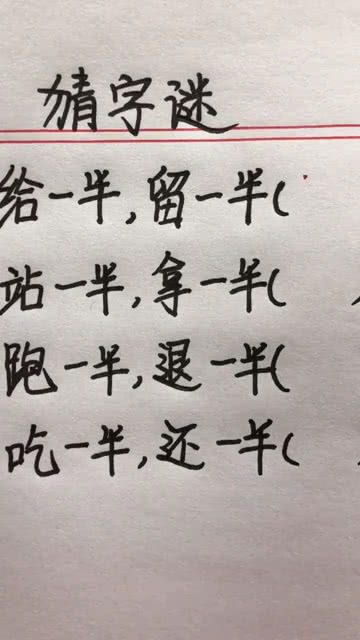 猜字谜
给一半,留一半(
站一半,拿一半(
跑一半,退一半(
吃一半,还一半(